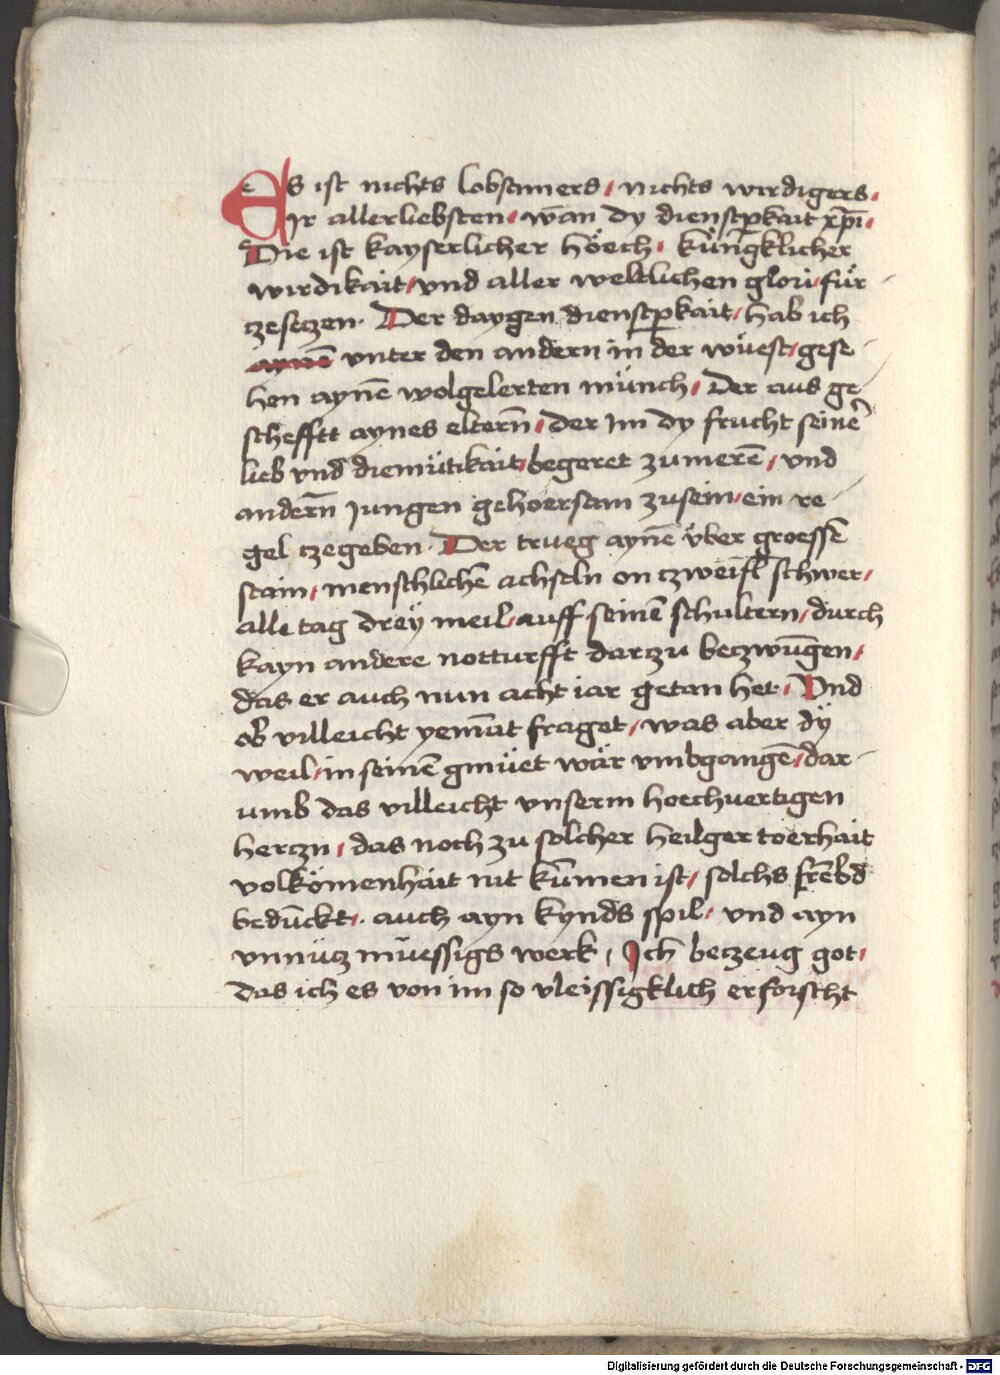 Es ist nichts lobsamers / nichts wirdigers /
Ir allerliebsten / wan̄ dy dienstp̲kait xp̄i /
Die ist kayserlicher höech / kün̄gklicher
wirdikait / vnd aller weltlichen glori / für
tzesetzen. Der daygen dienstp̲kait / hab ich
aynē vnter den andern in der wüest / gese
hen aynē wolgelerten münch / Der aus ge
schefftt aynes eltern̄ / der im dy frucht seinē
lieb vnd diemütikait / begeret zumerē / vnd
andern̄ jungen gehoersam zusein / ein re
gel tzegeben. Der trueg aynē über groessē
stain / menschlichē achseln on tzweifl schwer /
alle tag dreÿ meil / auff seinē schultern / durch
kayn andere notturfft darzu betzwūgen /
das er auch nun acht iar getan het / Vnd
ob villeicht yemāt fraget / was aber dÿ
weil / in seinē gmüet wär vmbgangē / dar
umb das villeicht vnserm hoechuertigen
hertzn / das noch zu solcher heilger toerhait
volkōmenhait nit kūmen ist / solchs frēbd
bedūckt / auch ayn kynds spil / vnd ayn
vnnütz müessigs werk / Ich betzeug got /
das ich es von im so vleissigklich erforscht
Digitalisierung gefördert durch die Deutsche Forschungsgemeinschaft - DFG